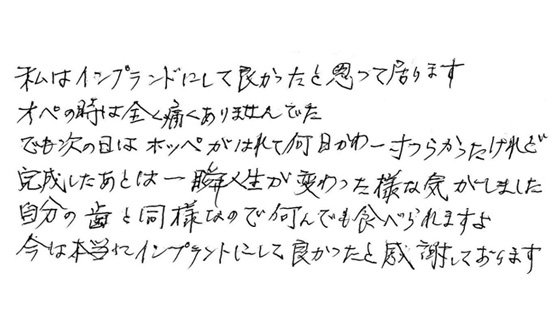 私はインプランドにして良かったと思って居ります
オペの時は全く痛くありませんでした
でも次の日はホッペがはれて何日かわ一寸つらかったけれど
完成したあとは一瞬人生が変わった様な気がしました
自分の歯と同様なので何んでも食べられますよ
今は本当にインプラントにして良かったと感謝しております